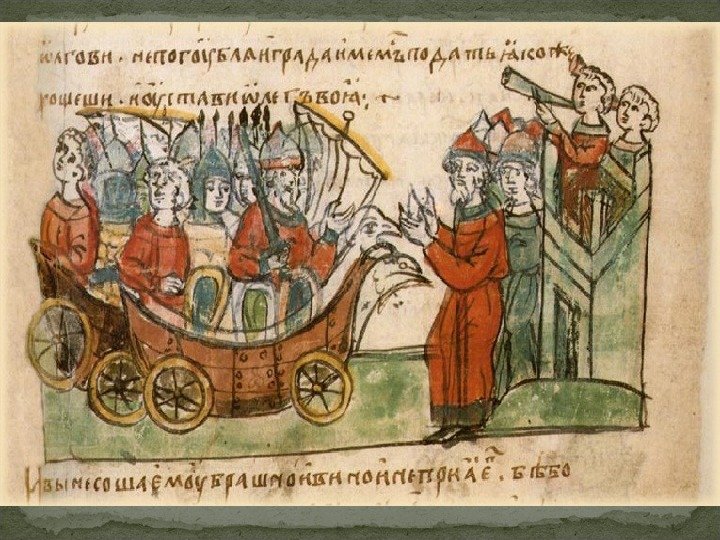 ѡлгови · непогоубляиградаимемъподать ꙗкоже
хощеши · иоуставиѡлегъвоꙗ ; ~
ивынесошаемоубрашноивинои неприꙗе · бѣбо